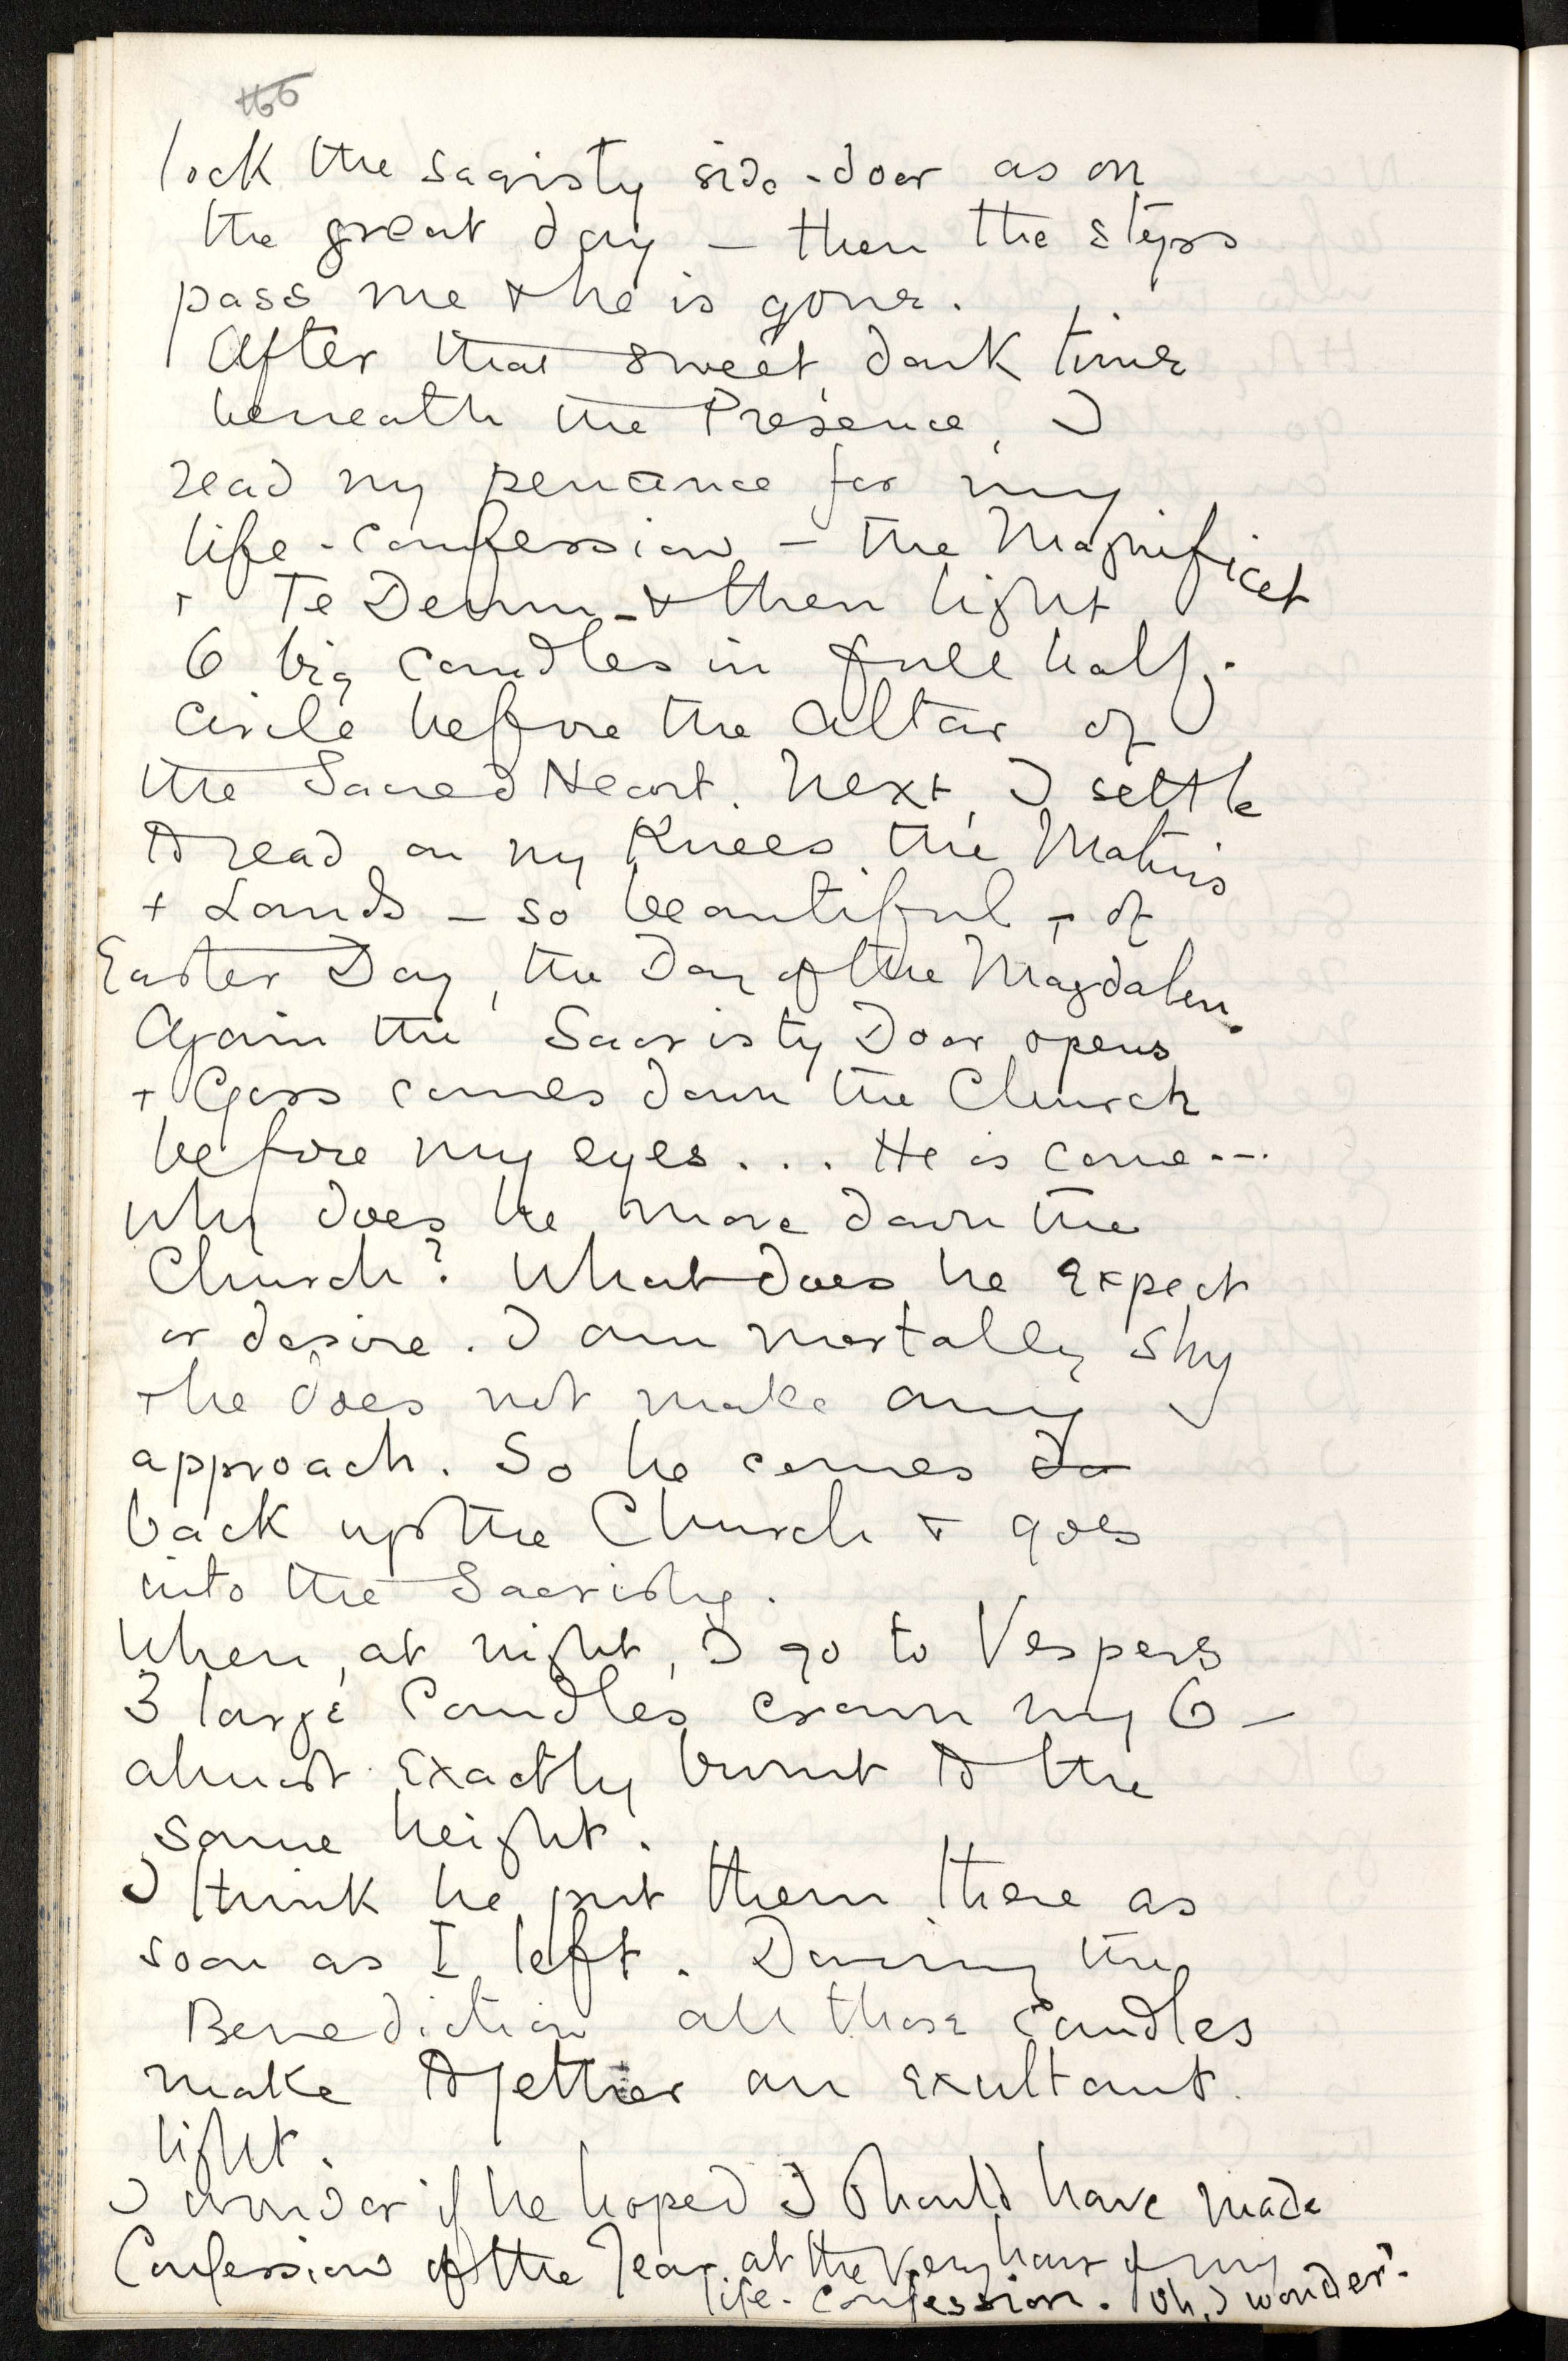 166
lock the sacristy side-door as on
the great day — then the steps
pass me & he is gone.
After that sweet, dark time
beneath the Presence, I
read my penance for my
life-confession — the Magnificat
+ Te Deum — & then light
6 big candles in full half-
circle before the altar of
the Sacred Heart. Next, I settle
to read on my knees the Matins
+ Lauds — so beautiful — of
Easter Day, the Day of the Magdalen.
Again the Sacristy Door opens
+ Goss comes down the Church
before my eyes... He is come---
Why does he move down the
Church? What does he expect
or desire. I am mortally shy
+ he does not make any
approach. So he comes do
back up the Church + goes
into the Sacristy.
When, at night, I go to Vespers
3 large Candles crown my 6 —
almost exactly burnt to the
same height.
I think he put them there as
soon as I left. During the
Benediction all those candles
make together an exultant
light.
I wonder if he hoped I should have made
Confession of the Year at the very hour of my
life-confession. Oh, I wonder!